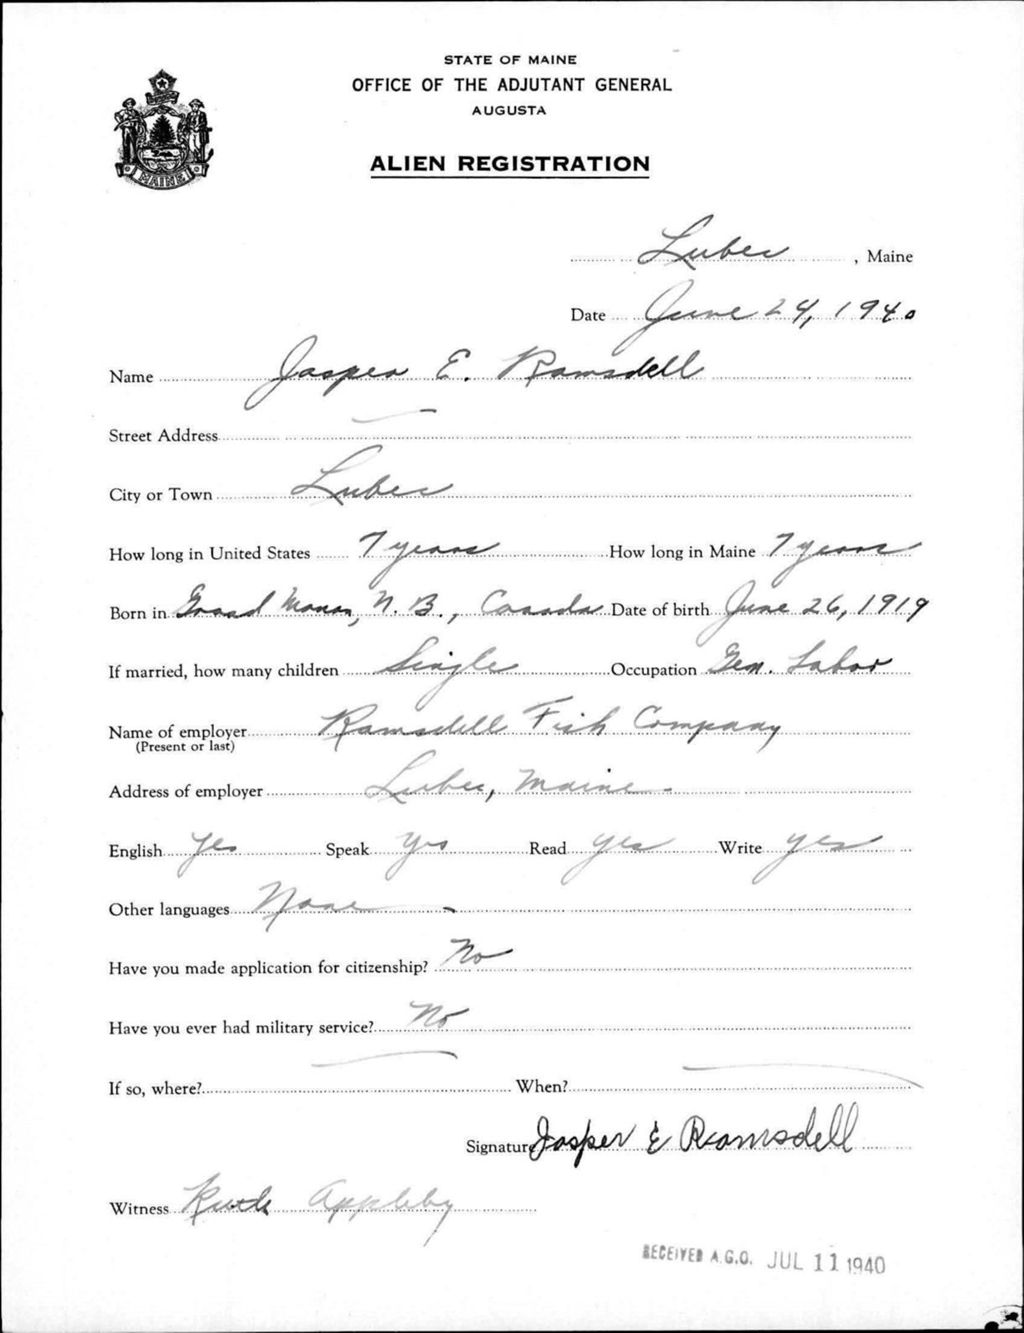 STATE OF MAINE
OFFICE OF THE ADJUTANT GENERAL
AUGUSTA
ALIEN REGISTRATION
MAINE
Lubec, Maine
Date June 24, 1940
Name Jasper E. Ramsdell
Street Address —
City or Town Lubec
How long in United States 7 years How long in Maine 7 years
Born in Grand Manan, N. B., Canada Date of birth June 26, 1919
If married, how many children Single Occupation Gen. Labor
Name of employer Ramsdell Fish Company
(Present or last)
Address of employer Lubec, Maine
English Yes Speak Yes Read yes Write yes
Other languages None
Have you made application for citizenship? No
Have you ever had military service? No
If so, where? — When? —
Signature Jasper E Ramsdell
Witness Ruth Appleby
RECEIVED A.G.O. JUL 11 1940